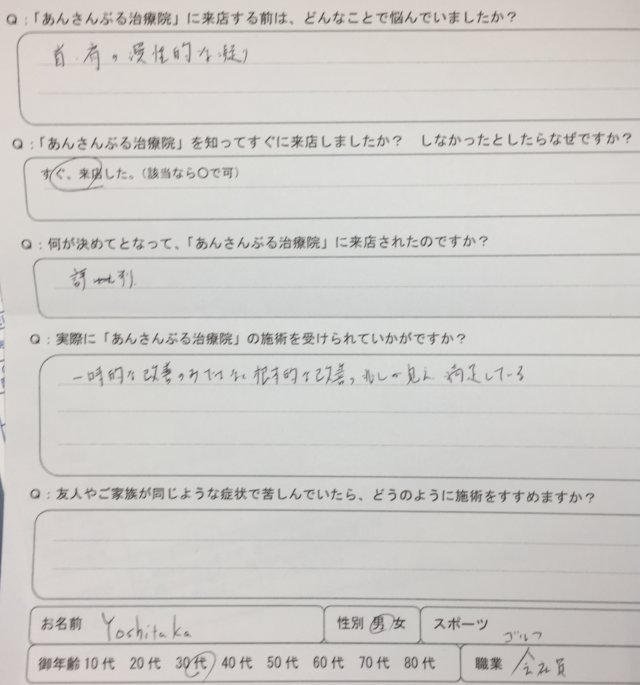 Q：「あんさんぶる治療院」に来店する前は、どんなことで悩んでいましたか？
首・肩の慢性的な凝り
Q：「あんさんぶる治療院」を知ってすぐに来店しましたか？　しなかったとしたらなぜですか？
すぐ、来店した。（該当なら〇で可）
Q：何が決めてとなって、「あんさんぶる治療院」に来店されたのですか？
評判
Q：実際に「あんさんぶる治療院」の施術を受けられていかがですか？
一時的な改善のみでなく根本的な改善の兆しが見え 満足している
Q：友人やご家族が同じような症状で苦しんでいたら、どうのように施術をすすめますか？
お名前 Yoshitaka 性別 男 女 スポーツ ゴルフ
御年齢 10代 20代 30代 40代 50代 60代 70代 80代 職業 会社員